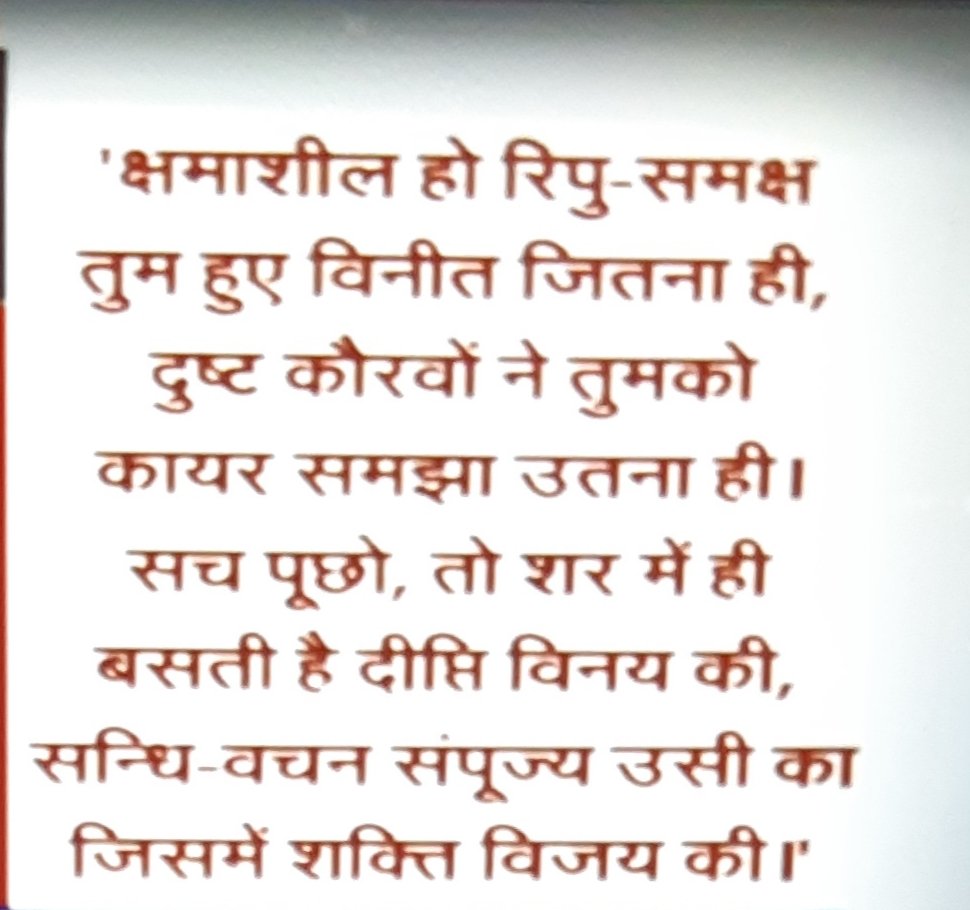 'क्षमाशील हो रिपु-समक्ष
तुम हुए विनीत जितना ही,
दुष्ट कौरवों ने तुमको
कायर समझा उतना ही।
सच पूछो, तो शर में ही
बसती है दीप्ति विनय की,
सन्धि-वचन संपूज्य उसी का
जिसमें शक्ति विजय की।'